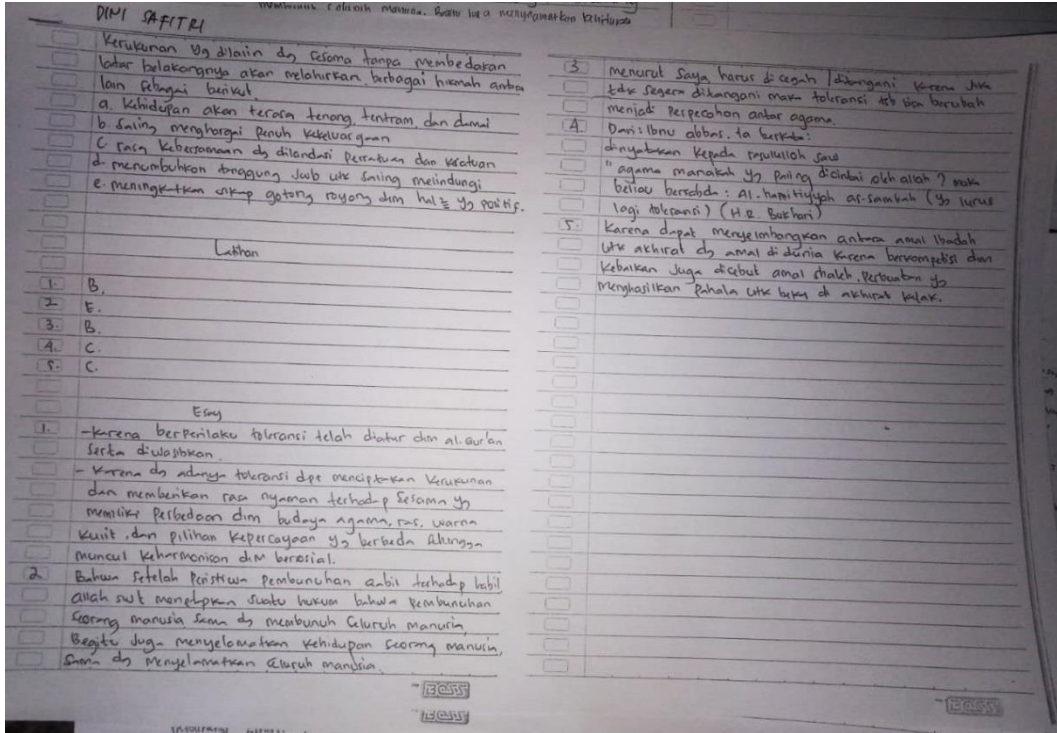 DINI SAFITRI
Kerukunan yg dilain dg sesama tanpa membedakan
latar belakangnya akan melahirkan berbagai hikmah antara
lain sebagai berikut.
a. Kehidupan akan terasa tenang, tentram, dan damai
b. Saling menghargai penuh kekeluargaan
c. rasa kebersamaan dg dilandasi persatuan dan kesatuan
d. menumbuhkan tanggung jwb utk saling melindungi
e. meningkatkan sikap gotong royong dlm hal² yg positif.
Latihan
1. B.
2. E.
3. B.
4. C.
5. C.
Esay
1. - Karena berperilaku toleransi telah diatur dlm al-Qur'an
serta diwajibkan.
- Karena dg adanya toleransi dpt menciptakan kerukunan
dan memberikan rasa nyaman terhadap sesama yg
memiliki perbedaan dlm budaya agama, ras, warna
kulit, dan pilihan kepercayaan yg berbeda shingga
muncul keharmonisan dlm bersosial.
2. Bahwa setelah peristiwa pembunuhan qabil terhadap habil
allah swt menetapkan suatu hukum bahwa pembunuhan
seorang manusia sama dg membunuh seluruh manusia
Begitu juga menyelamatkan kehidupan seorang manusia,
sama dg menyelamatkan seluruh manusia.
BOSS
BOSS
3 menurut saya harus di cegah / ditangani karena jika
tdk segera ditangani maka toleransi tsb bisa berubah
menjadi perpecahan antar agama.
4. Dari: Ibnu abbas, Ia berkata:
dinyatakan kepada rasulullah saw
"agama manakah yg paling dicintai oleh allah? maka
beliau bersabda: Al-hanifiyyah as-samhah (yg lurus
lagi toleransi) (H.R. Bukhari)
5. Karena dapat menyeimbangkan antara amal ibadah
utk akhirat dg amal di dunia karena berkompetisi dlm
kebaikan juga disebut amal shaleh, perbuatan yg
menghasilkan pahala utk bekal di akhirat kelak.
BOSS